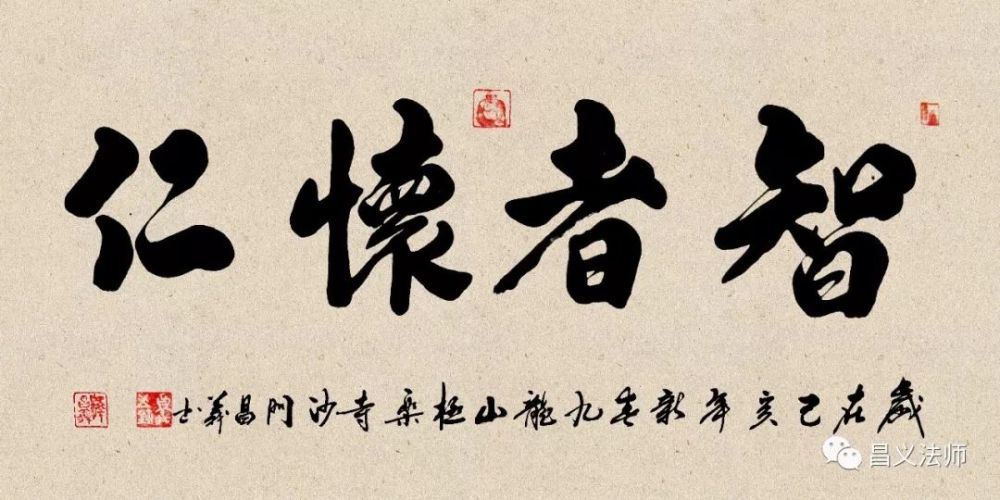 智者懷仁
歲在己亥年新春九龍山極樂寺沙門昌義书
昌义法师